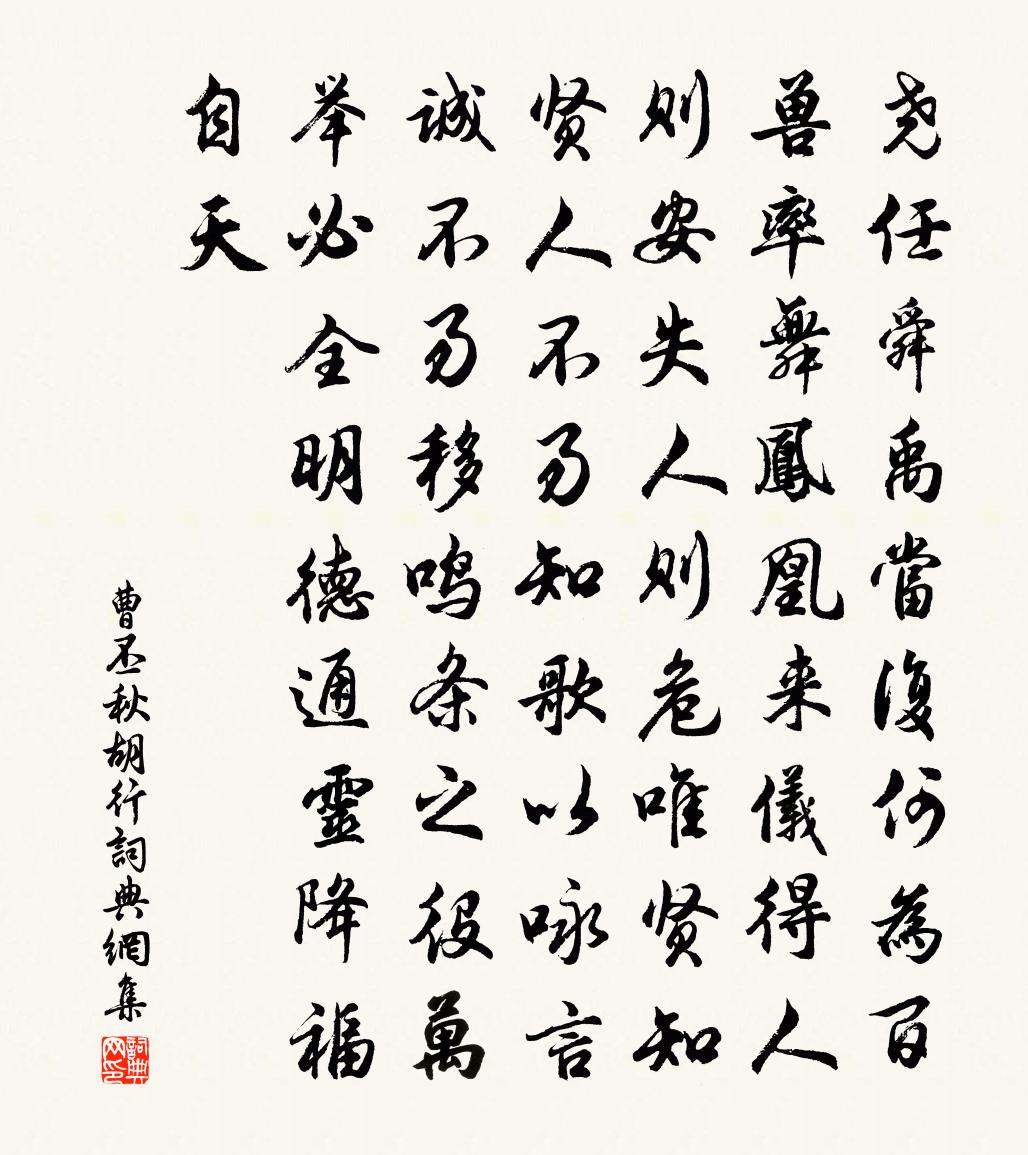 尧任舜禹當復何為百
兽率舞鳳凰来儀得人
则安失人则危唯贤知
贤人不易知歌以咏言
誠不易移鸣条之役萬
举必全明德通靈降福
自天
曹丕秋胡行詞典網集
詞典
网印